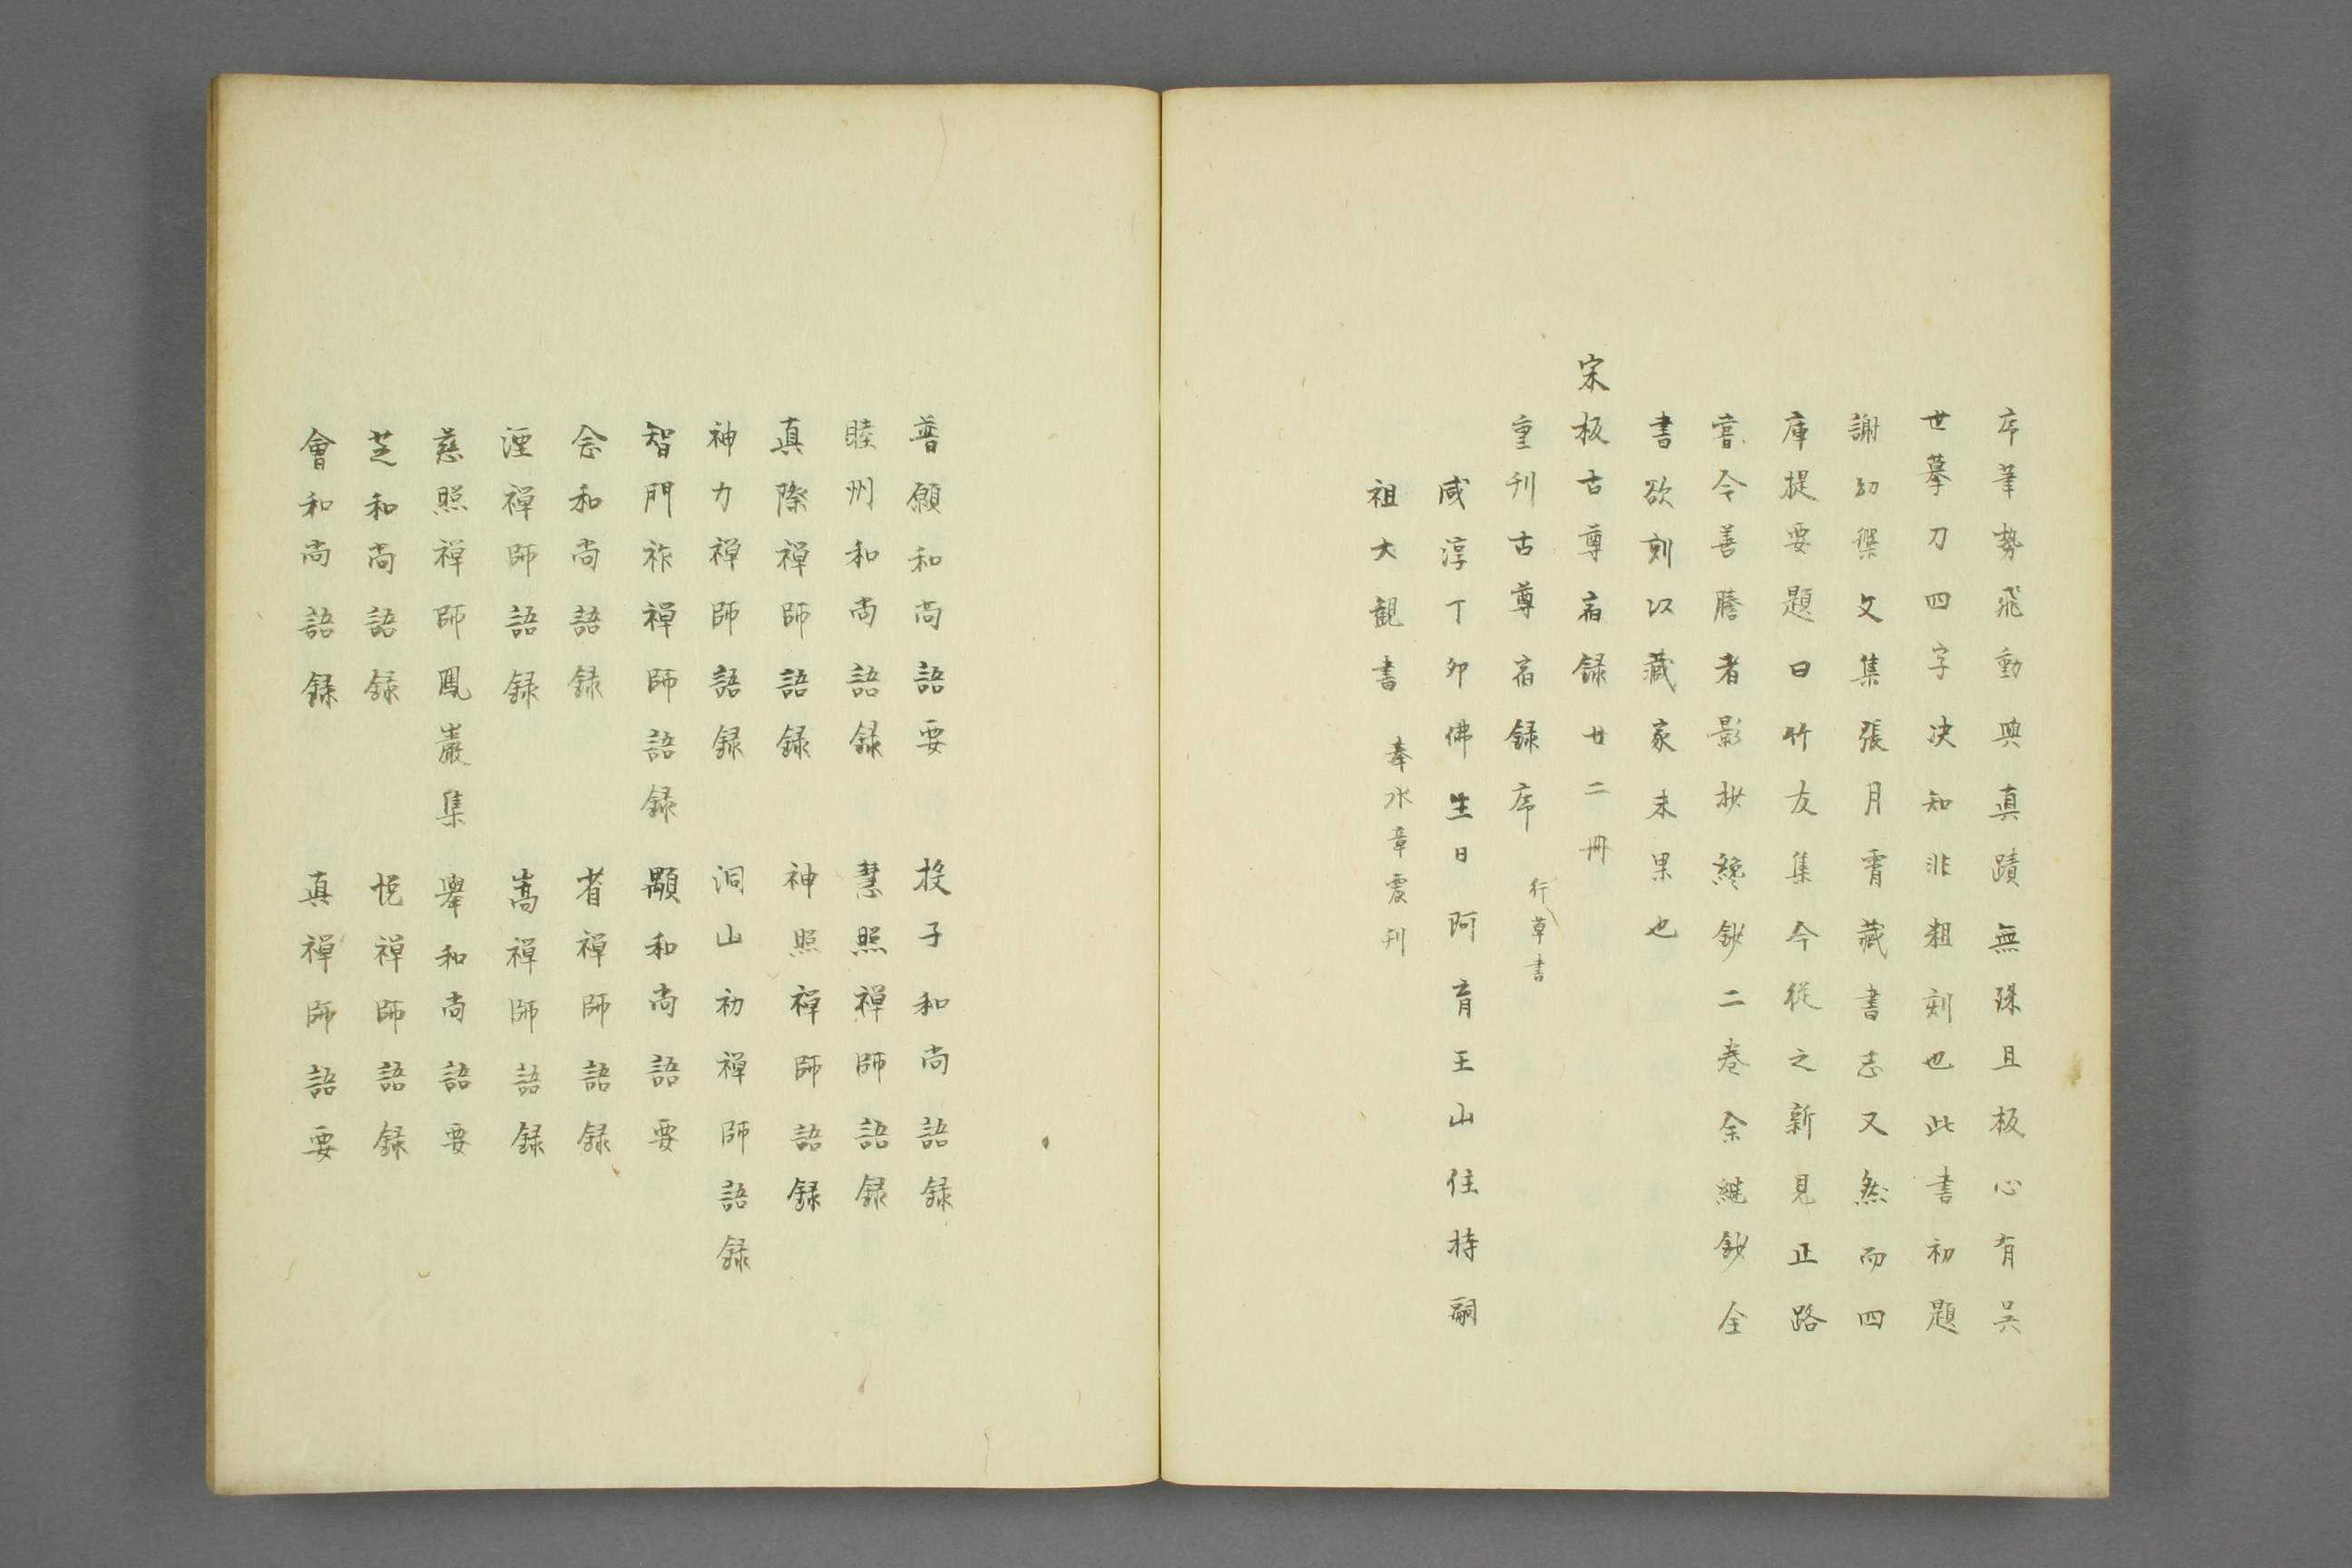 序筆勢飛動與真蹟無殊且板心有吳
世摹刀四字决知非粗刻也此書初題
謝幼槃文集張月霄藏書志又然而四
庫提要題曰竹友集今從之新見正路
嘗令善謄者影抄纔鈔二卷余継鈔全
書欲刻以藏家未果也
宋板古尊宿録廿二冊
重刊古尊宿録序 行草書
咸淳丁卯佛生日 阿育王山住持嗣
祖大観書 奉水章震刊
普願和尚語要 投子和尚語録
睦州和尚語録 慧照禅師語録
真際禅師語録 神照禅師語録
神力禅師語録 洞山初禅師語録
智門祚禅師語録 顯和尚語要
念和尚語録 省禅師語録
湮禅師語録 嵩禅師語録
慈照禅師鳳巖集 舉和尚語要
芝和尚語録 悦禅師語録
會和尚語録 真禅師語要